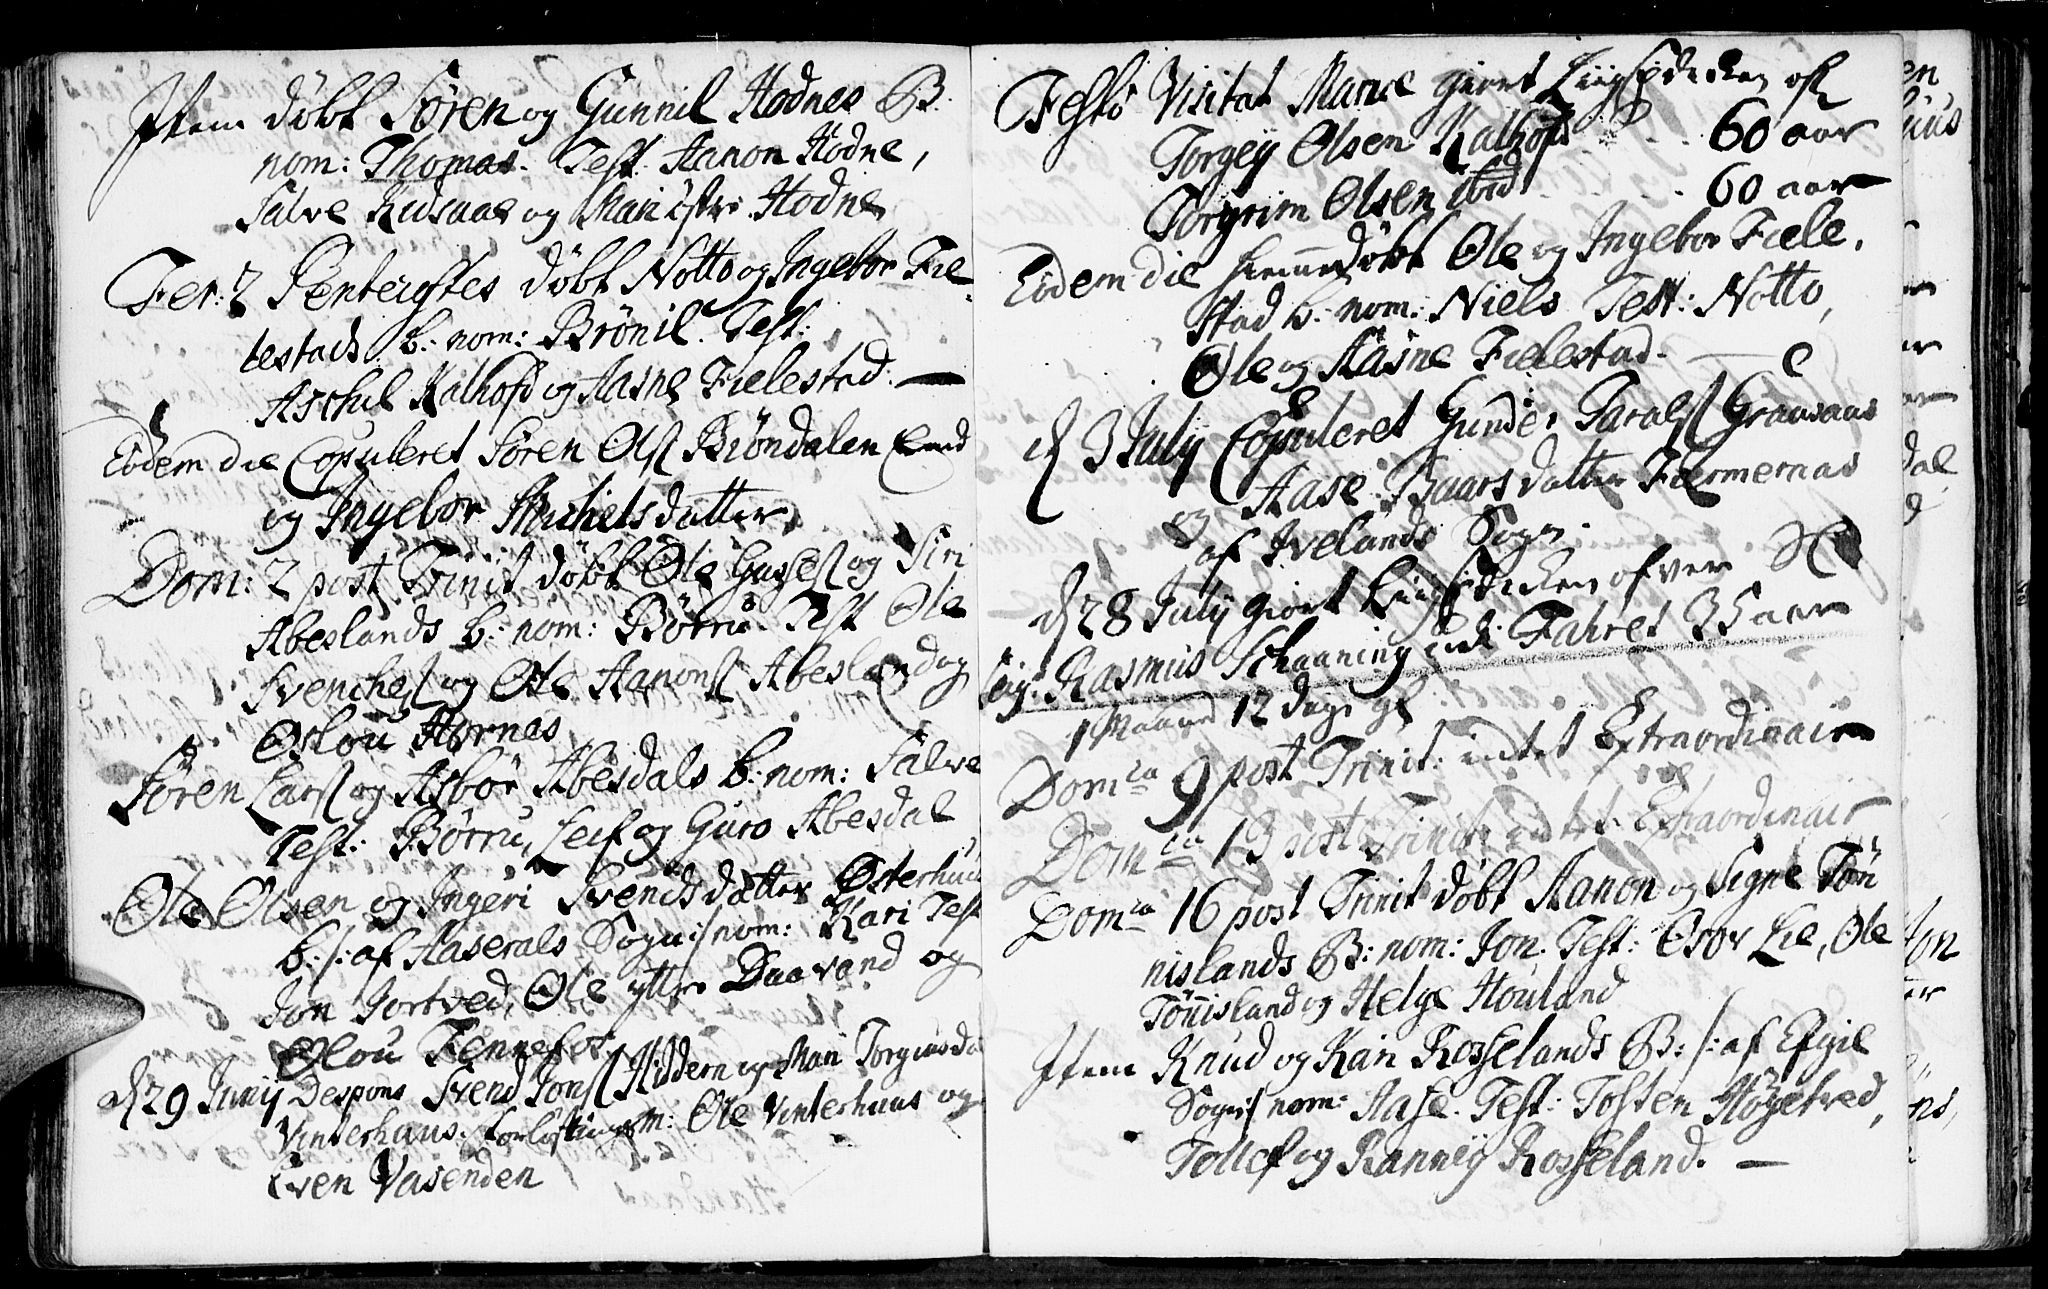 Item döbt Sören og Gunnil Hodnes B.
nom: Thomas. Test. Aanon Hodne,
Salve Kidsaae og Mari östre Hodne
Fer: 2 Pentecostes döbt Notto og Ingebor Fie-
lestads b: nom: Brönil. Test:
Aschil Kalhofd og Aasne Fielestad.
Eodem die Copuleret Sören Olss Biöndalen
og Ingebor Michelsdatter,
Dom: 2 post Trinit döbt Ole Gusses og Siri
Abeslands b: nom: Börru. Test Ole
Svenches og Ole Aanons Abesland og
Oslou Hornes
Sören Lars og Asbör Abesdals b: nom: Salve
Test: Börru, Leif og Guro Abesdal
Ole Olsen og Ingeri Svendsdatter Österhuus
b: /: af Aaserals Sogn :/ nom: Kari Test
Jon Jortved, Ole yttre Daavand og
Olou Fennefos
d 29 Junij Despons Svend Jons Hiddern og Mari Torgiusda
Vinterhuus. Forlöftings m: Ole Vinterhuus og
Even Vasenden
Festo Visitat Mariæ giort Liigprædicken ofr
Torgey Olsen Kalhofd . . . 60 aar
Torgrim Olsen ibid . . . 60 aar
Eodem die hiemmedöbt Ole og Ingebor Fiele,
stad b: nom: Niels Test: Notto,
Ole og Aasne Fielestad.
d 3 July Copuleret Gunder Tarals Graasaas
og Aase Baarsdatter Fiermernas
af Ivelands Sogn.
d 28 July giort Liigprædicken ofver
Sig: Rasmus Schaaning Fahret 35 aar
1 Maaned 12 dage gl
Domca 9 post Trinit: intet Extraordinair
Domca 13 post Trinit: intet Extraordinair
Domca 16 post Trinit döbt Aanon og Signe Tön
nislands B: nom: Jon. Test: Osov Lie, Ole
Tönisland og Helge Houland
Item Knud og Kari Rosselands B: /: af Efyie
Sogn :/ nom: Aase. Test: Tosten Högetved,
Tollef og Ranney Rosseland.